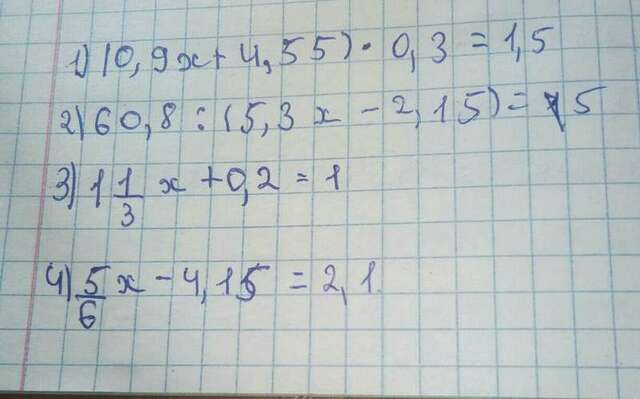 1) (0,9x + 4,55) · 0,3 = 1,5
2) 60,8 : (5,3x - 2,15) = 5
3) 1 1/3 x + 0,2 = 1
4) 5/6 x - 4,15 = 2,1